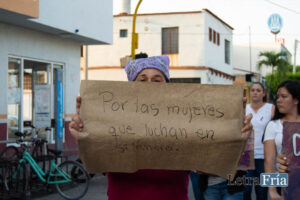 Por las mujeres
que luchan en
Letra
Fría